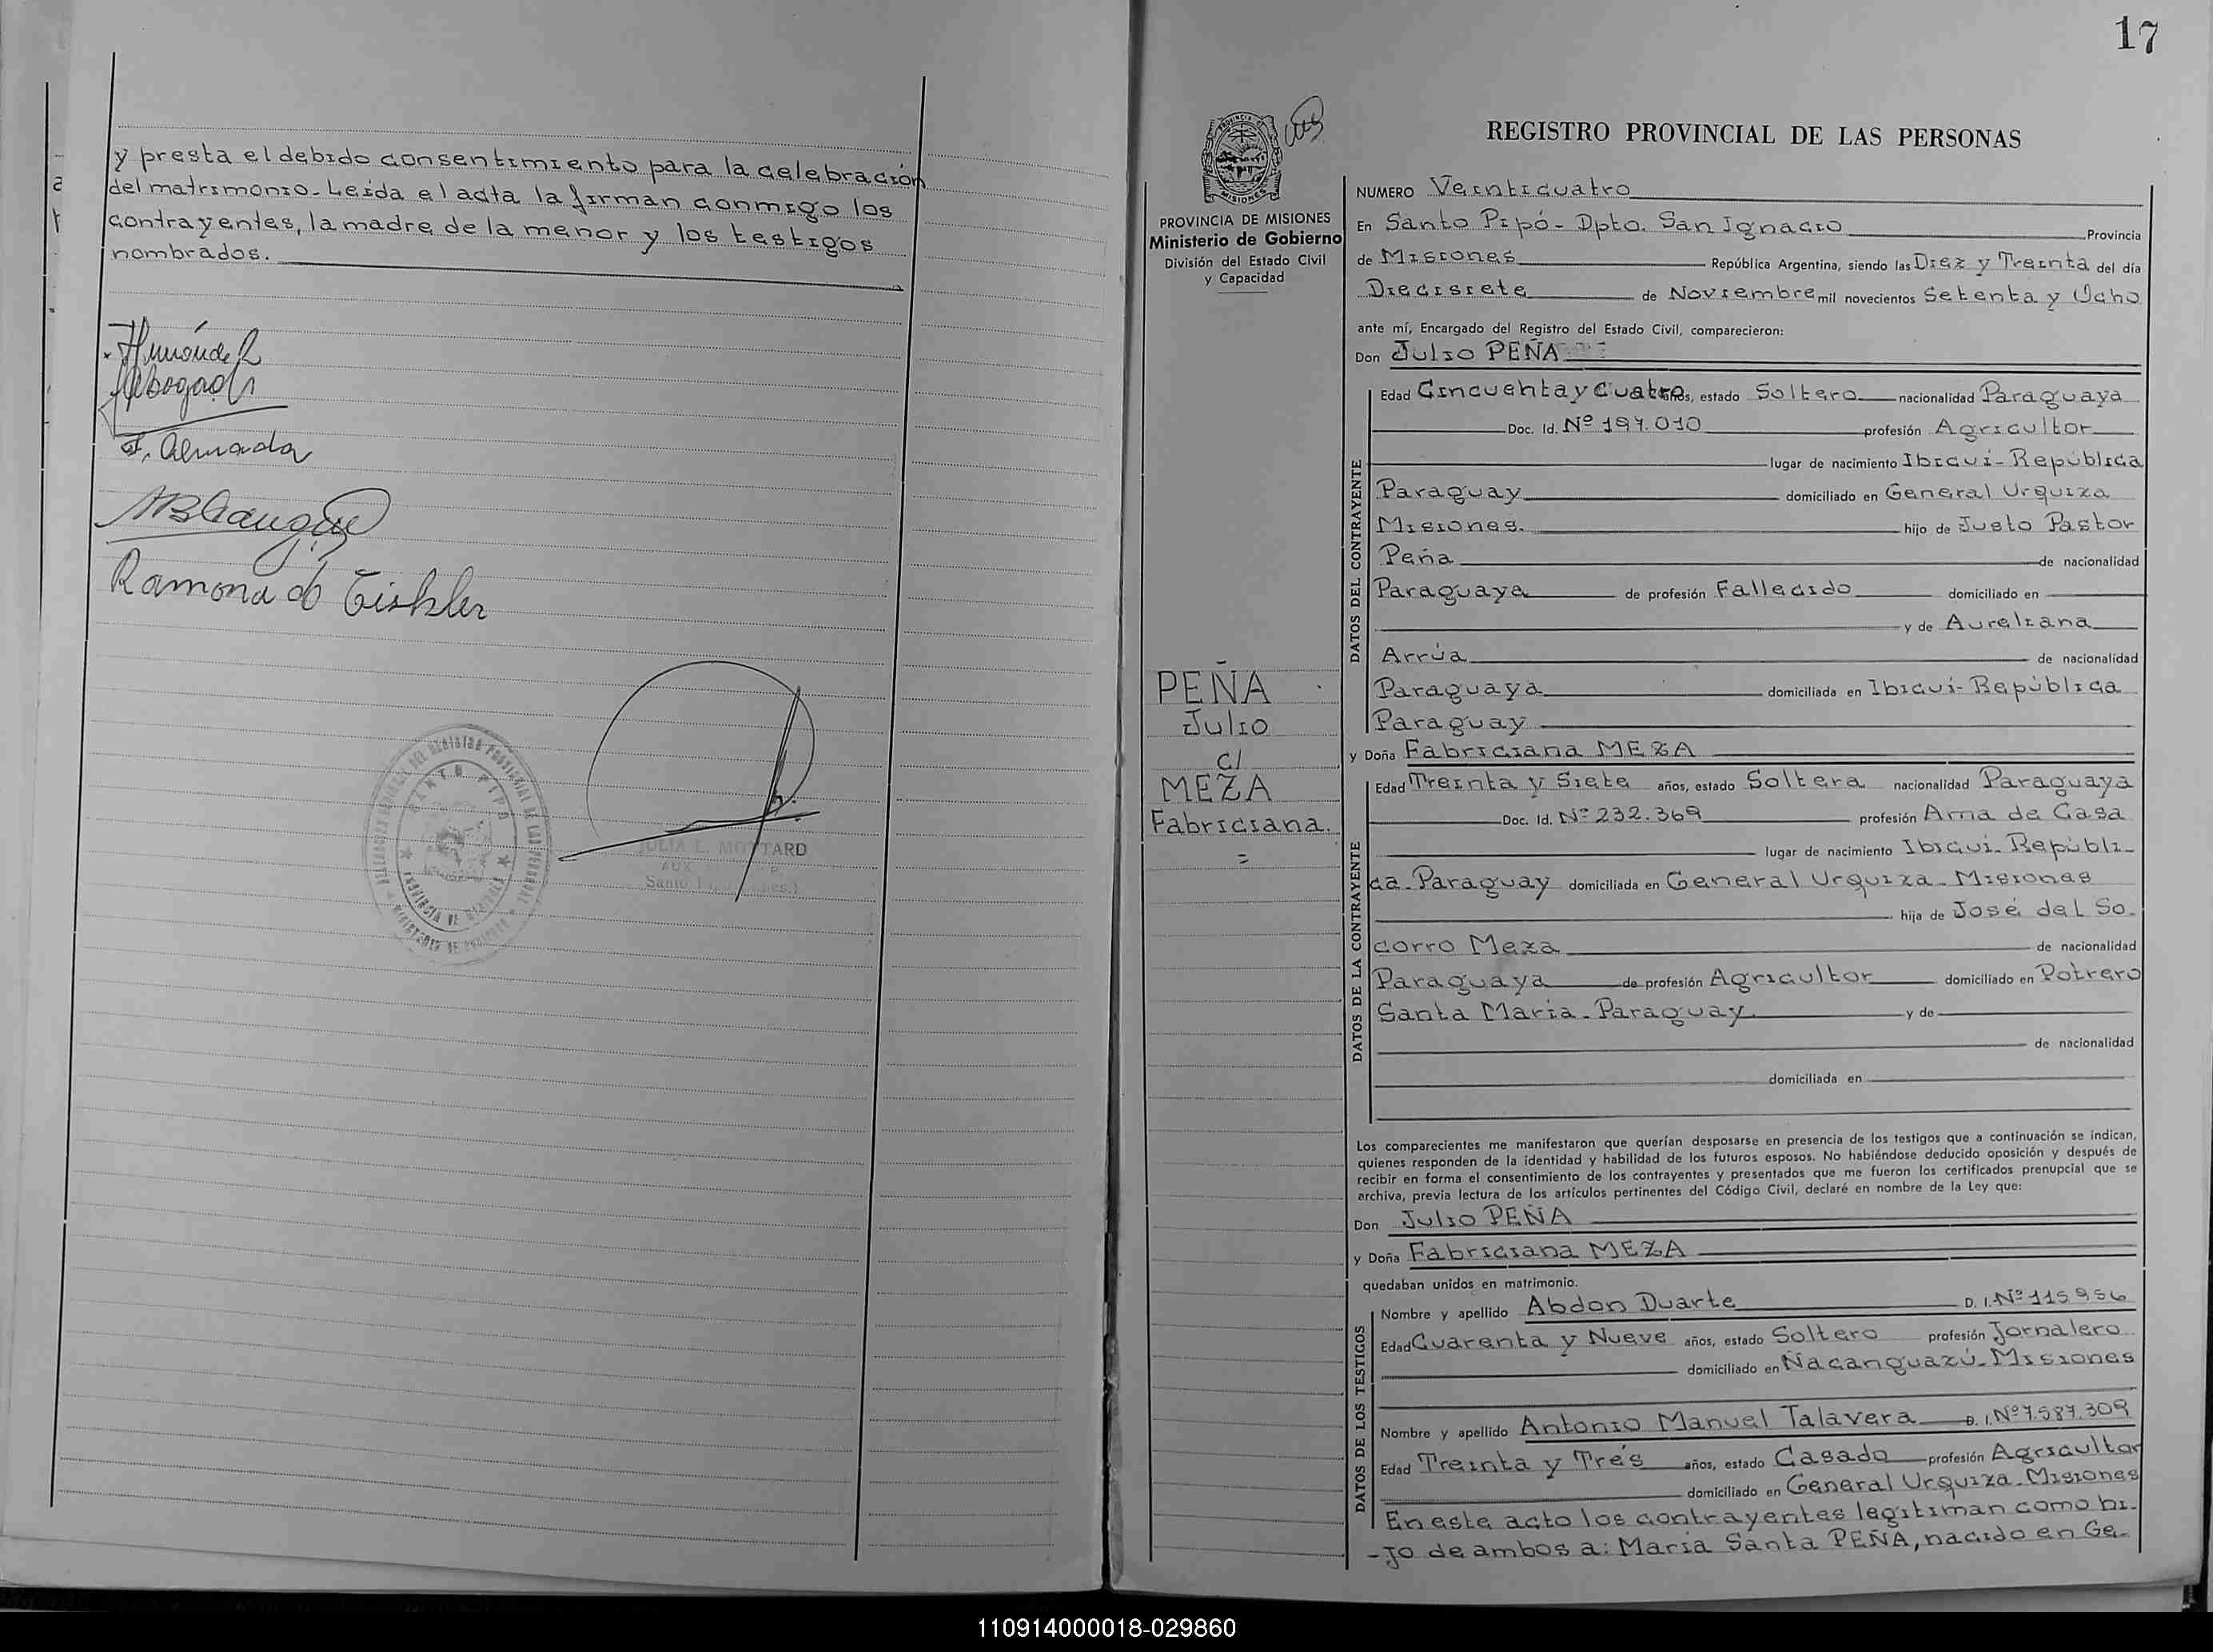 y presta el debido consentimiento para la celebración
del matrimonio. Leída el acta la firman conmigo los
contrayentes, la madre de la menor y los testigos
nombrados.
F. Almada
Ramona Tishler
SANTO PIPO
PROVINCIA DE MISIONES
JULIA E. MOTTARD
AUX
Santo
17
PROVINCIA DE MISIONES
Ministerio de Gobierno
División del Estado Civil
y Capacidad
PEÑA
Julio
c/
MEZA
Fabriciana.
=
REGISTRO PROVINCIAL DE LAS PERSONAS
NUMERO Veinticuatro
En Santo Pipó - Dpto. San Ignacio Provincia
de Misiones República Argentina, siendo las Diez y Treinta del día
Diecisiete de Noviembre mil novecientos Setenta y Ocho
ante mí, Encargado del Registro del Estado Civil, comparecieron:
Don Julio PEÑA
DATOS DEL CONTRAYENTE
Edad Cincuenta y Cuatro años, estado Soltero nacionalidad Paraguaya
Doc. Id. Nº 197.010 profesión Agricultor
lugar de nacimiento Ibicuí - República
Paraguay domiciliado en General Urquiza
Misiones. hijo de Justo Pastor
Peña de nacionalidad
Paraguaya de profesión Fallecido domiciliado en
y de Aureliana
Arrúa de nacionalidad
Paraguaya domiciliada en Ibicuí - República
Paraguay
y Doña Fabriciana MEZA
DATOS DE LA CONTRAYENTE
Edad Treinta y Siete años, estado Soltera nacionalidad Paraguaya
Doc. Id. Nº 232.369 profesión Ama de Casa
lugar de nacimiento Ibicuí - Repúbli-
ca - Paraguay domiciliada en General Urquiza - Misiones
hija de José del So-
corro Meza de nacionalidad
Paraguaya de profesión Agricultor domiciliado en Potrero
Santa María - Paraguay y de
de nacionalidad
domiciliada en
Los comparecientes me manifestaron que querían desposarse en presencia de los testigos que a continuación se indican,
quienes responden de la identidad y habilidad de los futuros esposos. No habiéndose deducido oposición y después de
recibir en forma el consentimiento de los contrayentes y presentados que me fueron los certificados prenupcial que se
archiva, previa lectura de los artículos pertinentes del Código Civil, declaré en nombre de la Ley que:
Don Julio PEÑA
y Doña Fabriciana MEZA
quedaban unidos en matrimonio.
DATOS DE LOS TESTIGOS
Nombre y apellido Abdon Duarte D. I. Nº 115956
Edad Cuarenta y Nueve años, estado Soltero profesión Jornalero
domiciliado en Ñacanguazú - Misiones
Nombre y apellido Antonio Manuel Talavera D. I. Nº 7.587.309
Edad Treinta y Trés años, estado Casado profesión Agricultor
domiciliado en General Urquiza - Misiones
En este acto los contrayentes legitiman como hi-
-jo de ambos a: María Santa PEÑA, nacido en Ge-
110914000018-029860